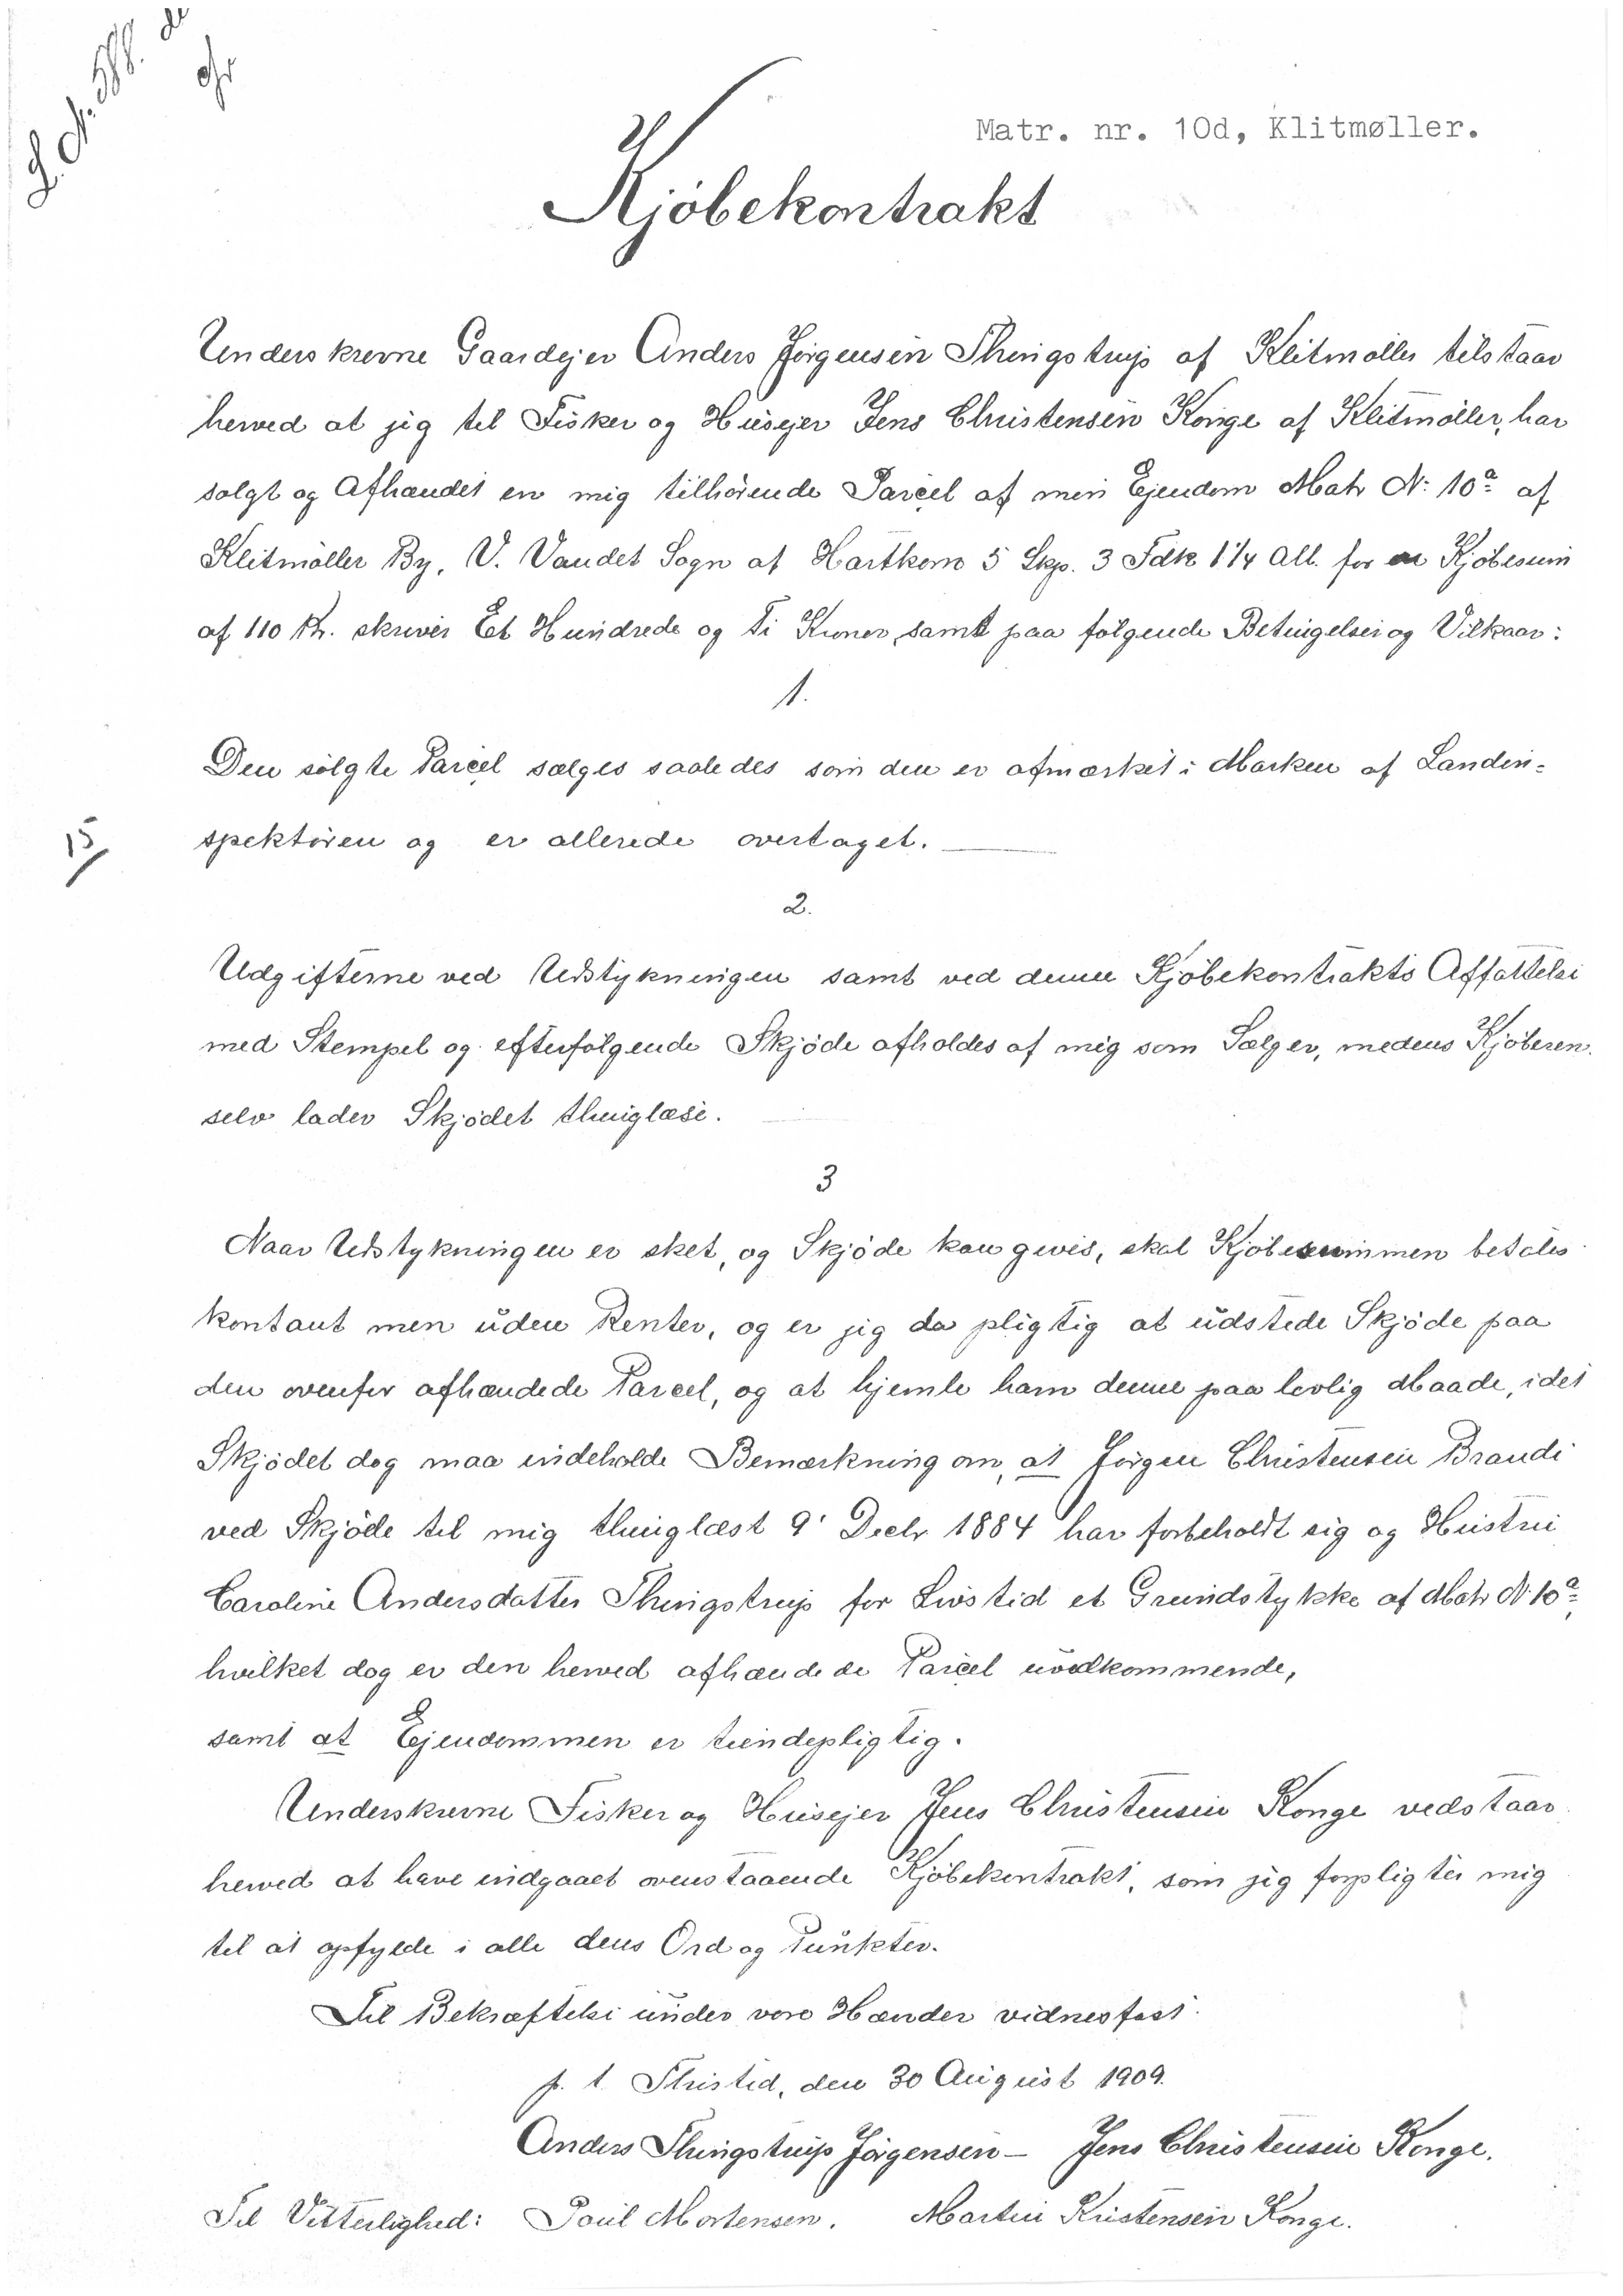 Matr. nr. 10d, Klitmøller.
Kjöbekontrakt
Underskrevne Gaardejer Anders Jörgensen Thingstrup af Klitmöller tilstaar
herved at jeg til Fisker og Husejer Jens Christensen Konge af Klitmöller, har
solgt og Afhændet en mig tilhörende Parcel af min Ejendom Matr Nº 10a af
Klitmöller By, V. Vandet Sogn af Hartkorn 5 Skp. 3 Fdk 1 1/4 Alb. for en Kjöbesum
af 110 Kr. skriver Et Hundrede og Ti Kroner, samt paa fölgende Betingelser og Vilkaar:
1.
Den solgte Parcel sælges saaledes som den er afmærket i Marken af Landin-
spektören og er allerede overtaget.
15/
2.
Udgifterne ved Udstykningen samt ved denne Kjöbekontrakts Affattelse
med Stempel og efterfölgende Skjöde afholdes af mig som Sælger, medens Kjöberen
selv lader Skjödet thinglæse.
3
Naar Udstykningen er sket, og Skjöde kan gives, skal Kjöbesummen betales
kontant men uden Renter, og er jeg da pligtig at udstede Skjöde paa
den ovenfor afhændede Parcel, og at hjemle ham denne paa lovlig Maade, idet
Skjödet dog maa indeholde Bemærkning om, at Jörgen Christensen Brandi
ved Skjöde til mig thinglæst 9' Decbr 1884 har forbeholdt sig og Hustru
Caroline Andersdatter Thingstrup for Livstid et Grundstykke af Matr Nº 10a,
hvilket dog er den herved afhændede Parcel uvedkommende,
samt at Ejendommen er tiendepligtig.
Underskrevne Fisker og Husejer Jens Christensen Konge vedstaar
herved at have indgaaet ovenstaaende Kjöbekontrakt, som jeg forpligter mig
til at opfylde i alle dens Ord og Punkter.
Til Bekræftelse under vore Hænder vidnesfast.
p. t. Thisted, den 30 August 1909.
Anders Thingstrup Jörgensen - Jens Christensen Konge.
Til Vitterlighed: Poul Mortensen. Martin Kristensen Konge.